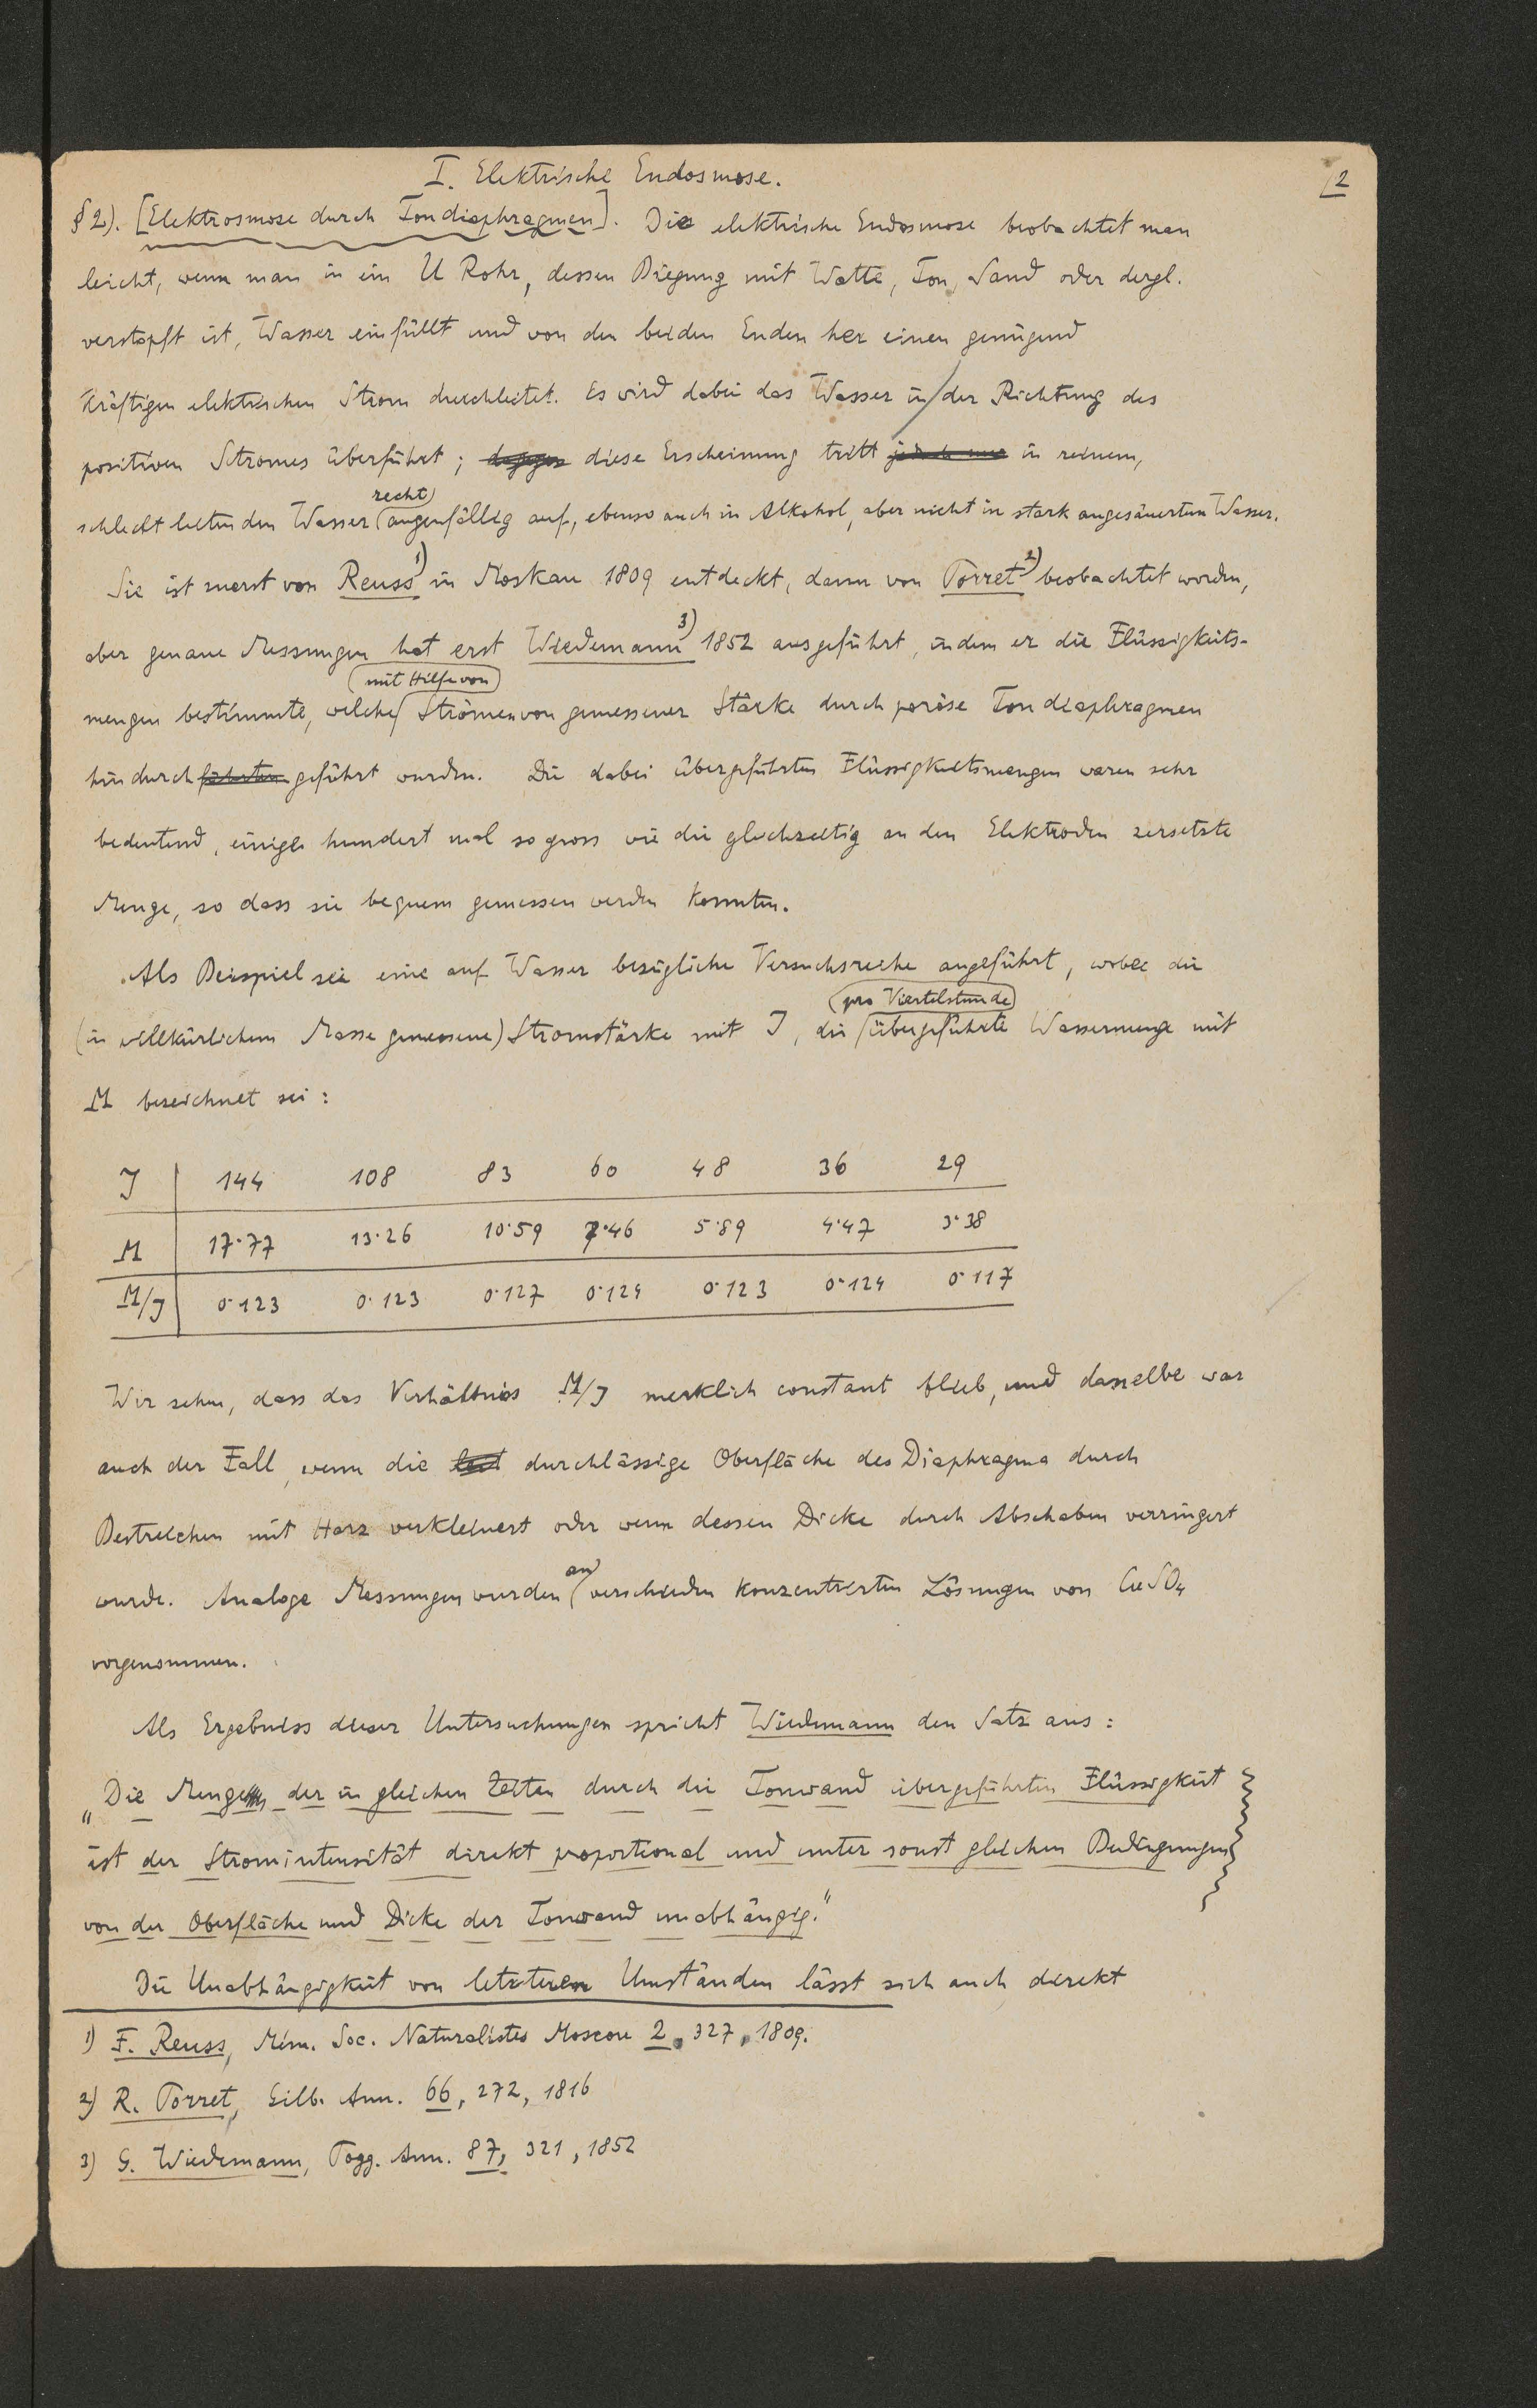 I. Elektrische Endosmose.
2
§ 2). [Elektrosmose durch Tondiaphragmen]. Die elektrische Endosmose beobachtet man
leicht, wenn man in ein U Rohr, dessen Biegung mit Watte, Ton, Sand oder dergl.
verstopft ist, Wasser einfüllt und von den beiden Enden her einen genügend
kräftigen elektrischen Strom durchleitet. Es wird dabei das Wasser in der Richtung des
positiven Stromes überführt; diese Erscheinung tritt in reinem,
recht
schlecht leitenden Wasser augenfällig auf, ebenso auch in Alkohol, aber nicht in stark angesäuertem Wasser.
Sie ist zuerst von Reuss 1) in Moskau 1809 entdeckt, dann von Porret 2) beobachtet worden,
aber genaue Messungen hat erst Wiedemann 3) 1852 ausgeführt, indem er die Flüssigkeits-
mit Hilfe von
mengen bestimmte, welche Strömen von gemessener Stärke durch poröse Tondiaphragmen
hindurch führten geführt wurden. Die dabei übergeführten Flüssigkeitsmengen waren sehr
bedeutend, einige hundert mal so gross wie die gleichzeitig an den Elektroden zersetzte
Menge, so dass sie bequem gemessen werden konnten.
Als Beispiel sei eine auf Wasser bezügliche Versuchsreihe angeführt, wobei die
pro Viertelstunde
(in willkürlichem Masse gemessene) Stromstärke mit J, die übergeführte Wassermenge mit
M bezeichnet sei:
J 144 108 83 60 48 36 29
M 17·77 13·26 10·59 7·46 5·89 4·47 3·38
M/J 0·123 0·123 0·127 0·124 0·123 0·124 0·117
Wir sehen, dass das Verhältnis M/J merklich constant blieb, und dasselbe war
auch der Fall, wenn die durchlässige Oberfläche des Diaphragma durch
Bestreichen mit Harz verkleinert oder wenn dessen Dicke durch Abschaben verringert
an
wurde. Analoge Messungen wurden verschieden konzentrierten Lösungen von CuSO4
vorgenommen.
Als Ergebniss dieser Untersuchungen spricht Wiedemann den Satz aus:
„Die Menge der in gleichen Zeiten durch die Tonwand übergeführten Flüssigkeit
ist der Stromintensität direkt proportional und unter sonst gleichen Bedingungen
von der Oberfläche und Dicke der Tonwand unabhängig."
Die Unabhängigkeit von letzteren Umständen lässt sich auch direkt
1) F. Reuss, Mém. Soc. Naturalistes Moscou 2, 327, 1809.
2) R. Porret, Gilb. Ann. 66, 272, 1816
3) G. Wiedemann, Pogg. Ann. 87, 321, 1852